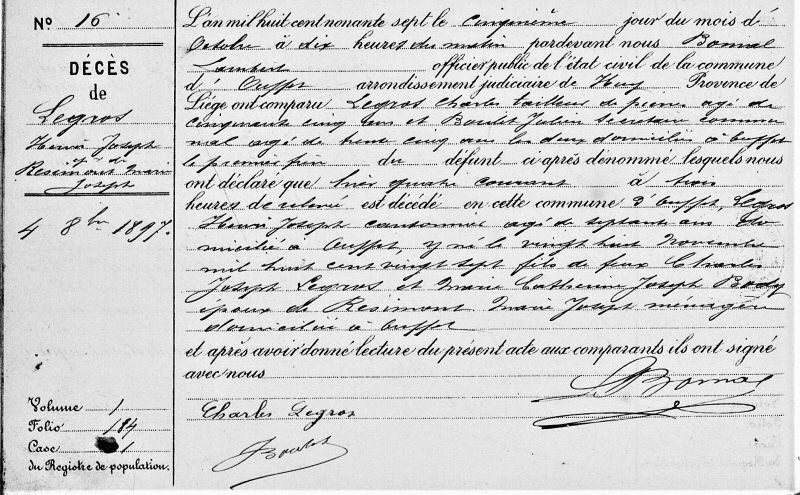 No 16
DÉCÈS
de
Legros
Henri Joseph
Résimont Marie
Joseph
4 8bre 1897.
Volume 1
Folio 184
Case 1
du Registre de population.
L'An mil huit cent nonante sept le cinquième jour du mois d'
Octobre à dix heures du matin pardevant nous Bomal
Lambert officier public de l'état civil de la commune
d' Ouffet arrondissement judiciaire de Huy Provence de
Liége ont comparu Legros Charles tailleur de pierres agé de
cinquante cinq ans et Boulet Julien Secrétaire commu
nal agé de trente cinq ans les deux domiciliés à Ouffet
le premier fils du défunt ci après dénommé lesquels nous
ont déclaré que hier quatre courant à trois
heures de relevé est décédé en cette commune d'Ouffet, Legros
Henri Joseph cantonnier agé de septante ans do
micilié à Ouffet, y né le vingt huit Novembre
mil huit cent vingt sept fils de feux Charles
Joseph Legros et Marie Catherine Joseph Body
époux de Résimont Marie Joseph ménagère
domiciliée à Ouffet
et après avoir donné lecture du présent acte aux comparants ils ont signé
avec nous
L Bomal
Charles Legros
J Boulet